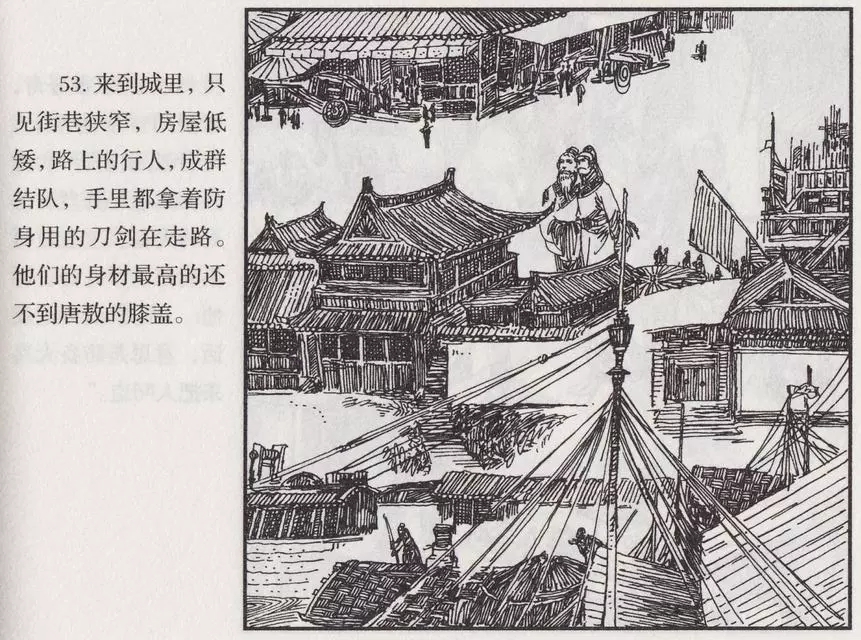 53. 来到城里，只
见街巷狭窄，房屋低
矮，路上的行人，成群
结队，手里都拿着防
身用的刀剑在走路。
他们的身材最高的还
不到唐敖的膝盖。